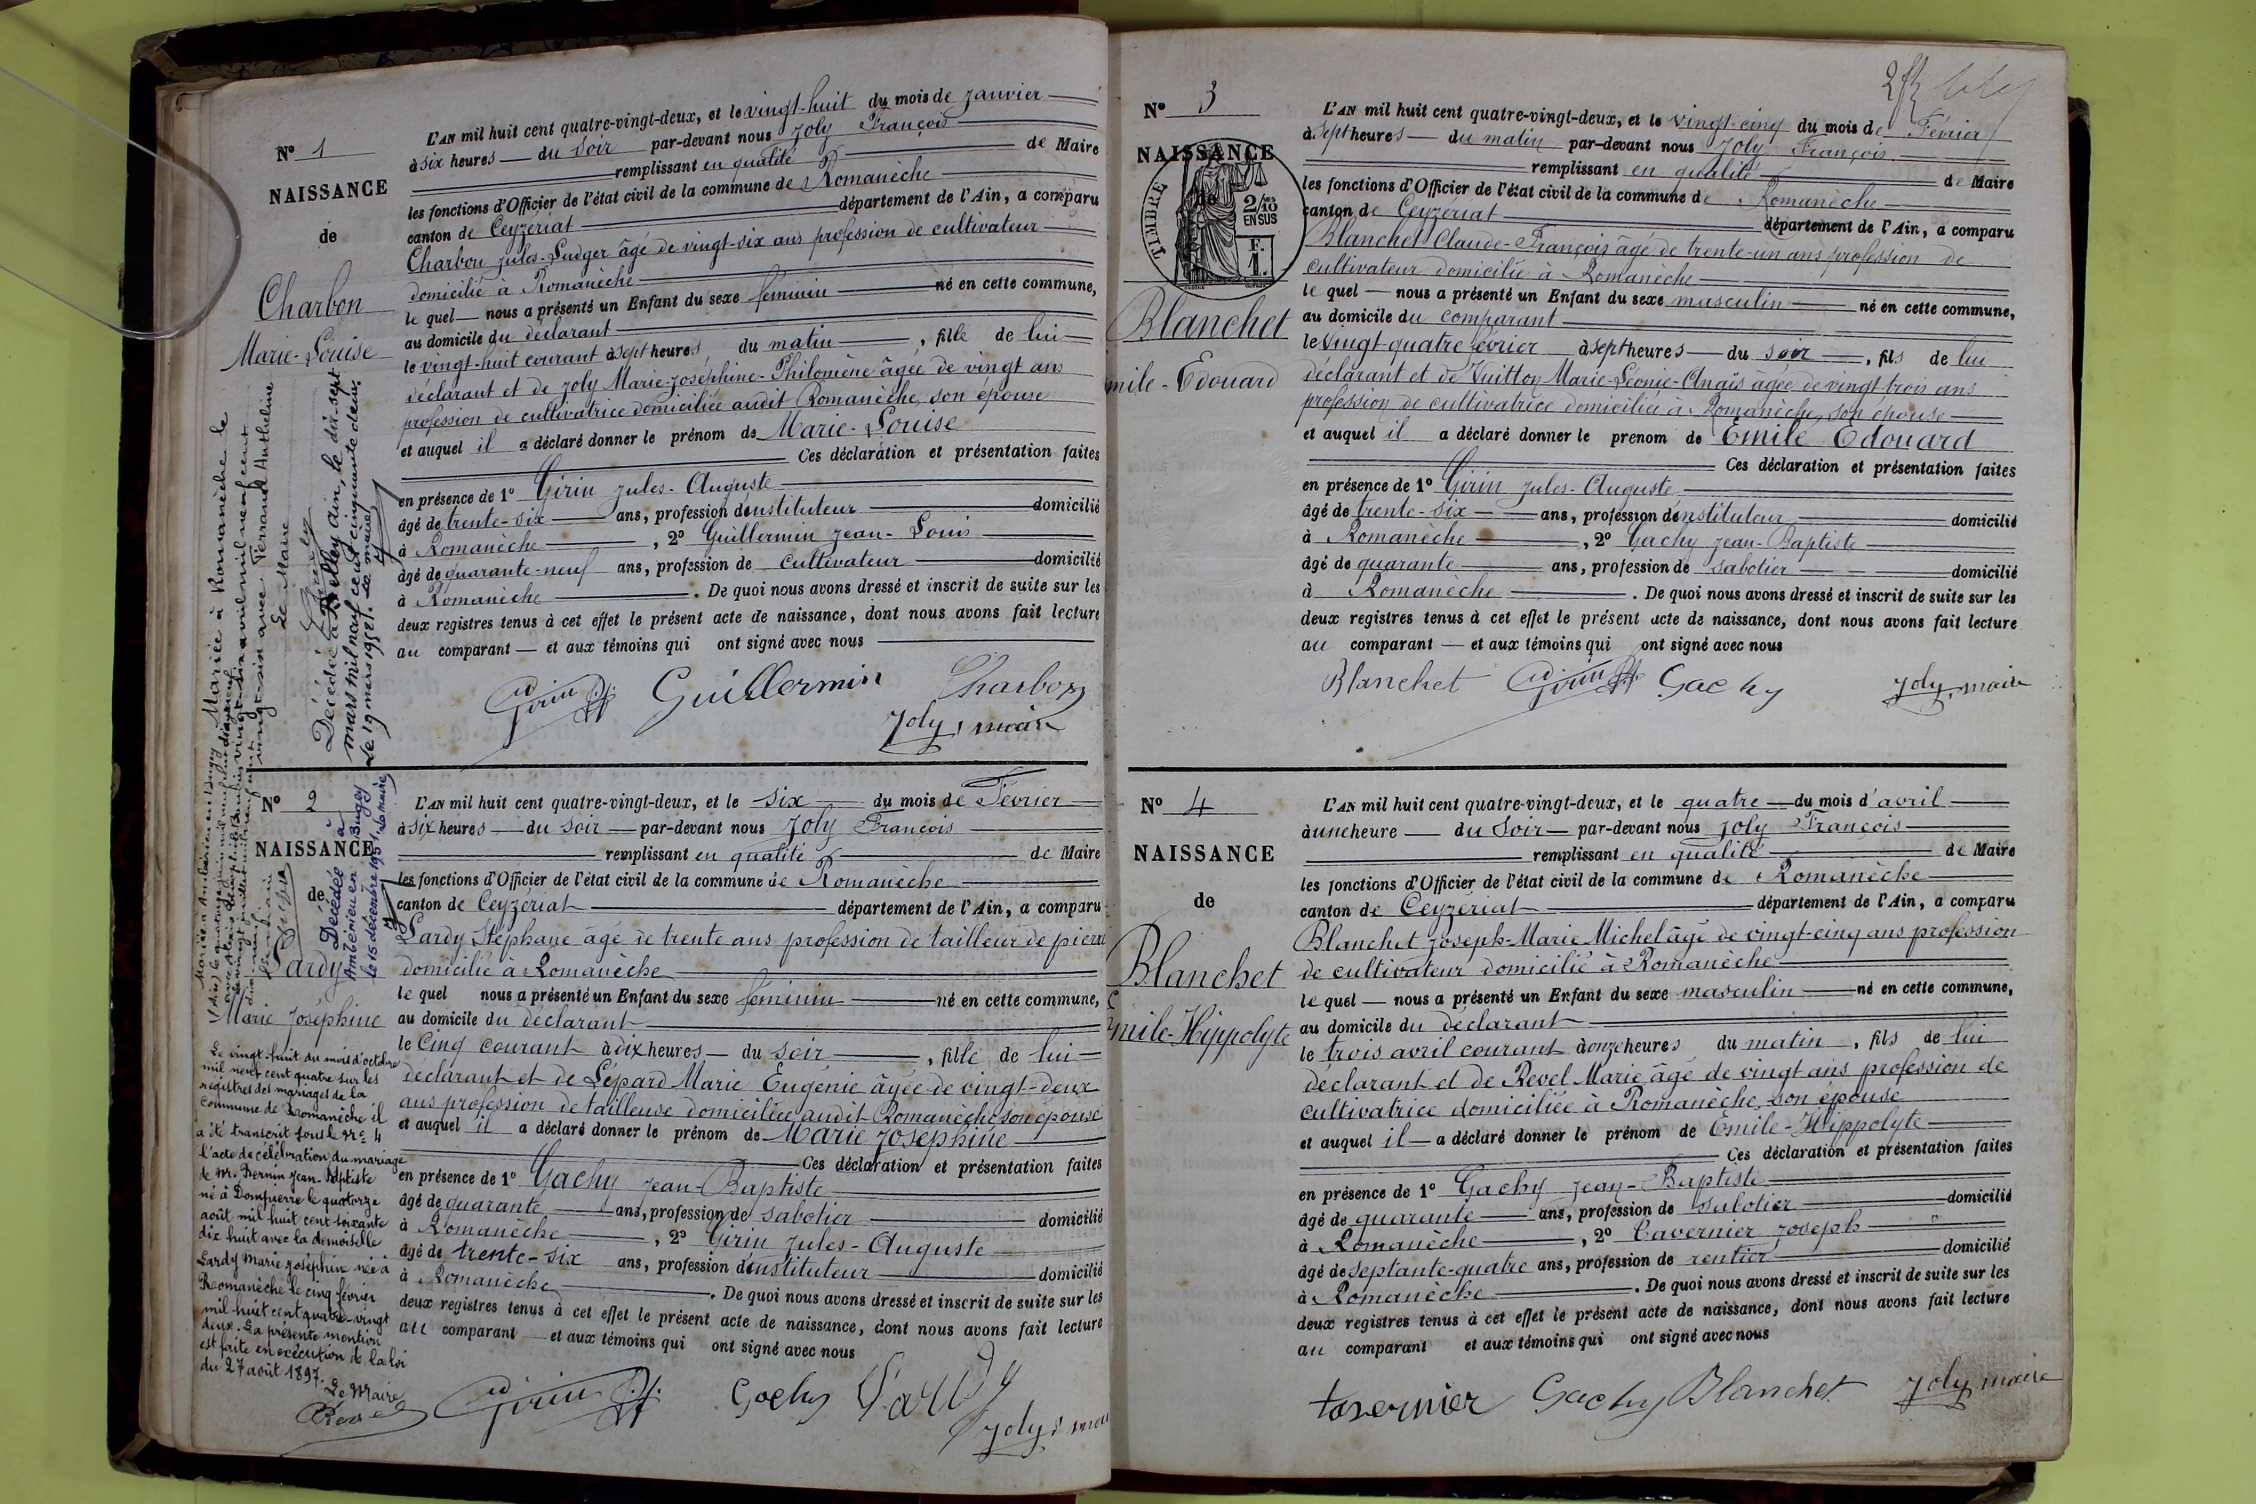 N° 1
NAISSANCE
de
Charbon
Marie-Louise
L'AN mil huit cent quatre-vingt-deux, et le vingt-huit du mois de janvier
à six heures du soir par-devant nous Joly François
remplissant en qualité de Maire
les fonctions d'Officier de l'état civil de la commune de Romanèche
canton de Ceyzériat département de l'Ain, a comparu
Charbon Jules-Ludger âgé de vingt-six ans profession de cultivateur
domicilié à Romanèche
le quel nous a présenté un Enfant du sexe féminin né en cette commune,
au domicile du déclarant
le vingt-huit courant à sept heures du matin, fille de lui
déclarant et de Joly Marie-Joséphine-Philomène âgée de vingt ans
profession de cultivatrice domiciliée audit Romanèche, son épouse
et auquel il a déclaré donner le prénom de Marie-Louise
Ces déclaration et présentation faites
en présence de 1° Girin Jules-Auguste
âgé de trente-six ans, profession d'instituteur domicilié
à Romanèche, 2° Guillermin Jean-Louis
âgé de quarante-neuf ans, profession de cultivateur domicilié
à Romanèche. De quoi nous avons dressé et inscrit de suite sur les
deux registres tenus à cet effet le présent acte de naissance, dont nous avons fait lecture
au comparant et aux témoins qui ont signé avec nous
Girin Guillermin Charbon
Joly, maire
Mariée à Romanèche le
vingt-six avril mil neuf cent
vingt-six avec Ferrand Anthelme
Le Maire
Décédée à Belley Ain, le dix-sept
mars mil neuf cent cinquante deux
Le 19 mars 1952. Le maire
N° 2
NAISSANCE
de
Lardy
Marie Joséphine
L'AN mil huit cent quatre-vingt-deux, et le six du mois de Février
à six heures du soir par-devant nous Joly François
remplissant en qualité de Maire
les fonctions d'Officier de l'état civil de la commune de Romanèche
canton de Ceyzériat département de l'Ain, a comparu
Lardy Stéphane âgé de trente ans profession de tailleur de pierre
domicilié à Romanèche
le quel nous a présenté un Enfant du sexe féminin né en cette commune,
au domicile du déclarant
le Cinq courant à dix heures du soir, fille de lui
déclarant et de Lépard Marie Eugénie âgée de vingt-deux
ans profession de tailleuse domiciliée audit Romanèche son épouse
et auquel il a déclaré donner le prénom de Marie Joséphine
Ces déclaration et présentation faites
en présence de 1° Gachy Jean-Baptiste
âgé de quarante ans, profession de sabotier domicilié
à Romanèche, 2° Girin Jules-Auguste
âgé de trente-six ans, profession d'instituteur domicilié
à Romanèche. De quoi nous avons dressé et inscrit de suite sur les
deux registres tenus à cet effet le présent acte de naissance, dont nous avons fait lecture
au comparant et aux témoins qui ont signé avec nous
Girin Gachy Lardy
Joly, mai
Décédée à
Ambérieu en Bugey
le 15 décembre 1951, Le maire
Le vingt-huit du mois d'octobre
mil neuf cent quatre sur les
registres des mariages de la
Commune de Romanèche il
a été transcrit sous le N° 4
l'acte de célébration du mariage
de Mr. Bernin Jean-Baptiste
né à Dompierre le quatorze
août mil huit cent soixante
dix huit avec la demoiselle
Lardy Marie Joséphine née à
Romanèche le cinq février
mil huit cent quatre-vingt
deux. La présente mention
est faite en exécution de la loi
du 27 août 1897.
Le Maire
Revel
N° 3
NAISSANCE
de
TIMBRE
2/10
EN SUS
F.
1.
Blanchet
mile-Edouard
L'AN mil huit cent quatre-vingt-deux, et le vingt-cinq du mois de Février
à sept heures du matin par-devant nous Joly François
remplissant en qualité de Maire
les fonctions d'Officier de l'état civil de la commune de Romanèche
canton de Ceyzériat département de l'Ain, a comparu
Blanchet Claude-François âgé de trente-un ans profession de
cultivateur domicilié à Romanèche
le quel nous a présenté un Enfant du sexe masculin né en cette commune,
au domicile du comparant
le vingt-quatre février à sept heures du soir, fils de lui
déclarant et de Vuitton Marie-Léonie-Anaïs âgée de vingt-trois ans
profession de cultivatrice domiciliée à Romanèche, son épouse
et auquel il a déclaré donner le prenom de Emile Edouard
Ces déclaration et présentation faites
en présence de 1° Girin Jules-Auguste
âgé de trente-six ans, profession d'instituteur domicilié
à Romanèche, 2° Gachy Jean-Baptiste
âgé de quarante ans, profession de sabotier domicilié
à Romanèche. De quoi nous avons dressé et inscrit de suite sur les
deux registres tenus à cet effet le présent acte de naissance, dont nous avons fait lecture
au comparant et aux témoins qui ont signé avec nous
Blanchet Girin Gachy Joly, maire
N° 4
NAISSANCE
de
Blanchet
mile-Hippolyte
L'AN mil huit cent quatre-vingt-deux, et le quatre du mois d'avril
à une heure du Soir par-devant nous Joly François
remplissant en qualité de Maire
les fonctions d'Officier de l'état civil de la commune de Romanèche
canton de Ceyzériat département de l'Ain, a comparu
Blanchet Joseph-Marie Michel âgé de vingt-cinq ans profession
de cultivateur domicilié à Romanèche
le quel nous a présenté un Enfant du sexe masculin né en cette commune,
au domicile du déclarant
le trois avril courant à onze heures du matin, fils de lui
déclarant et de Revel Marie âgé de vingt ans profession de
cultivatrice domiciliée à Romanèche, son épouse
et auquel il a déclaré donner le prénom de Emile-Hippolyte
Ces déclaration et présentation faites
en présence de 1° Gachy Jean-Baptiste
âgé de quarante ans, profession de sabotier domicilié
à Romanèche, 2° Tavernier Joseph
âgé de septante-quatre ans, profession de rentier domicilié
à Romanèche. De quoi nous avons dressé et inscrit de suite sur les
deux registres tenus à cet effet le présent acte de naissance, dont nous avons fait lecture
au comparant et aux témoins qui ont signé avec nous
tavernier Gachy Blanchet Joly, maire